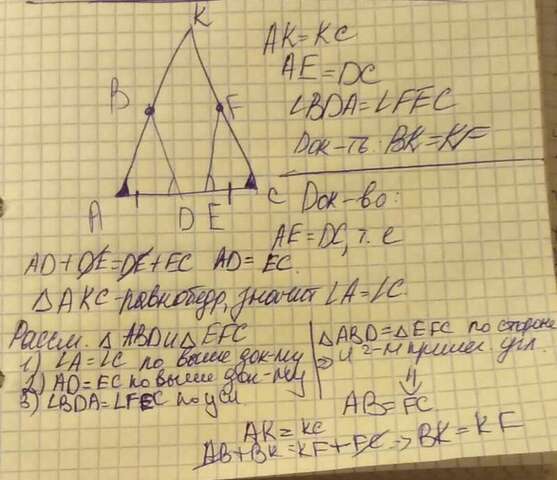 K
B
F
A
D E
C
AK=KC
AE=DC
∠BDA=∠FEC
Док-ть: BK=KF
Док-во:
AE=DC, т. е
AD+DE=DE+EC AD=EC.
△AKC-равнобедр, значит ∠A=∠C.
Рассм. △ABD и △EFC
1) ∠A=∠C по выше док-му
2) AD=EC по выше док-му
3) ∠BDA=∠FEC по усл
⇒ △ABD=△EFC по стороне
и 2-м прилеж. угл.
⇓
AB=FC
AK=KC
AB+BK=KF+FC ⇒ BK=KF